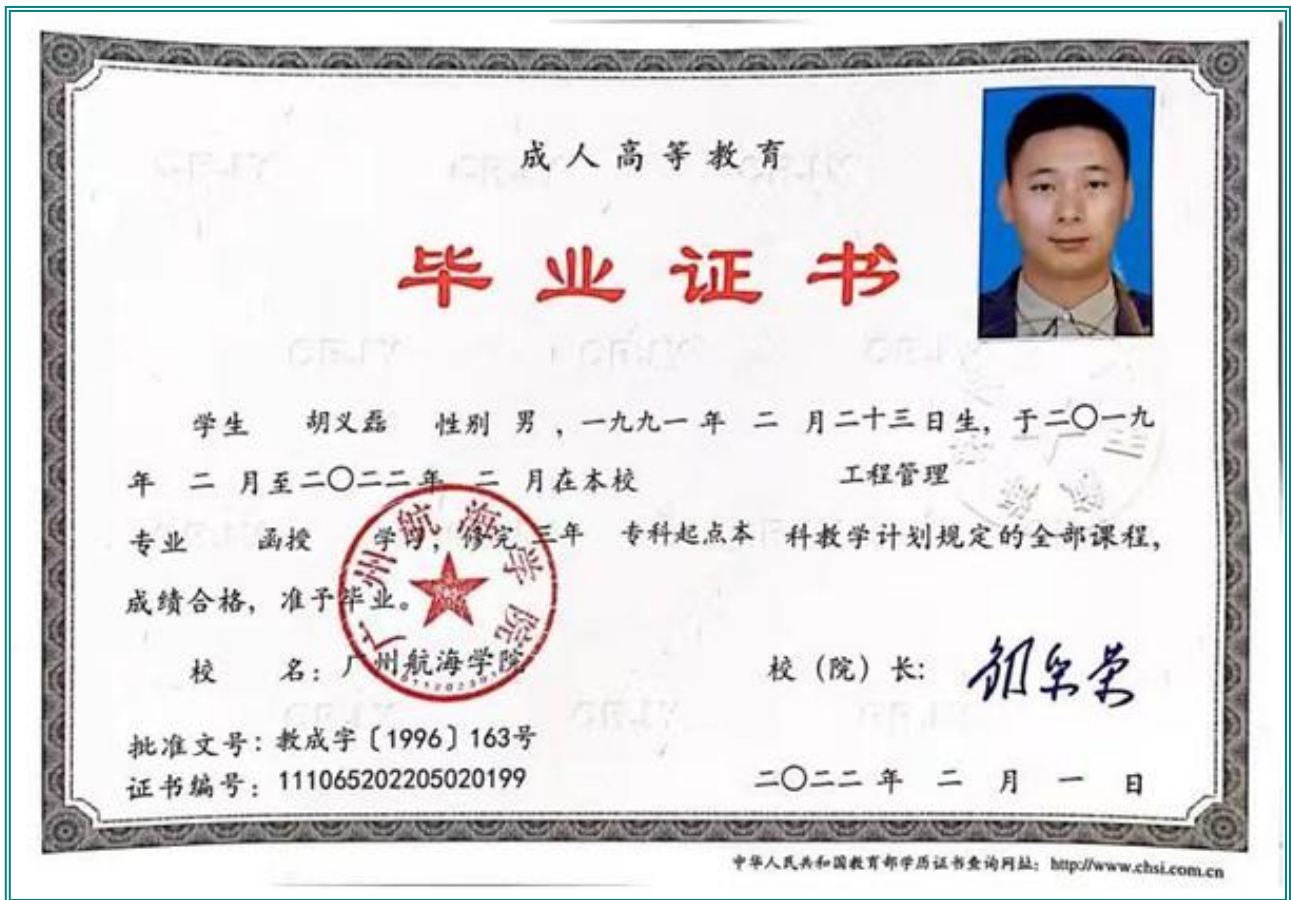 成人高等教育
毕业证书
学生 胡义磊 性别 男，一九九一年 二 月二十三日生，于二〇一九
年 二 月至二〇二二年 二 月在本校 工程管理
专业 函授 学习，修完 三年 专科起点本 科教学计划规定的全部课程，
成绩合格，准予毕业。
广州航海学院
校 名：广州航海学院 校（院）长：
批准文号：教成字〔1996〕163号
证书编号：111065202205020199
二〇二二 年 二 月 一 日
中华人民共和国教育部学历证书查询网址：http://www.chsi.com.cn